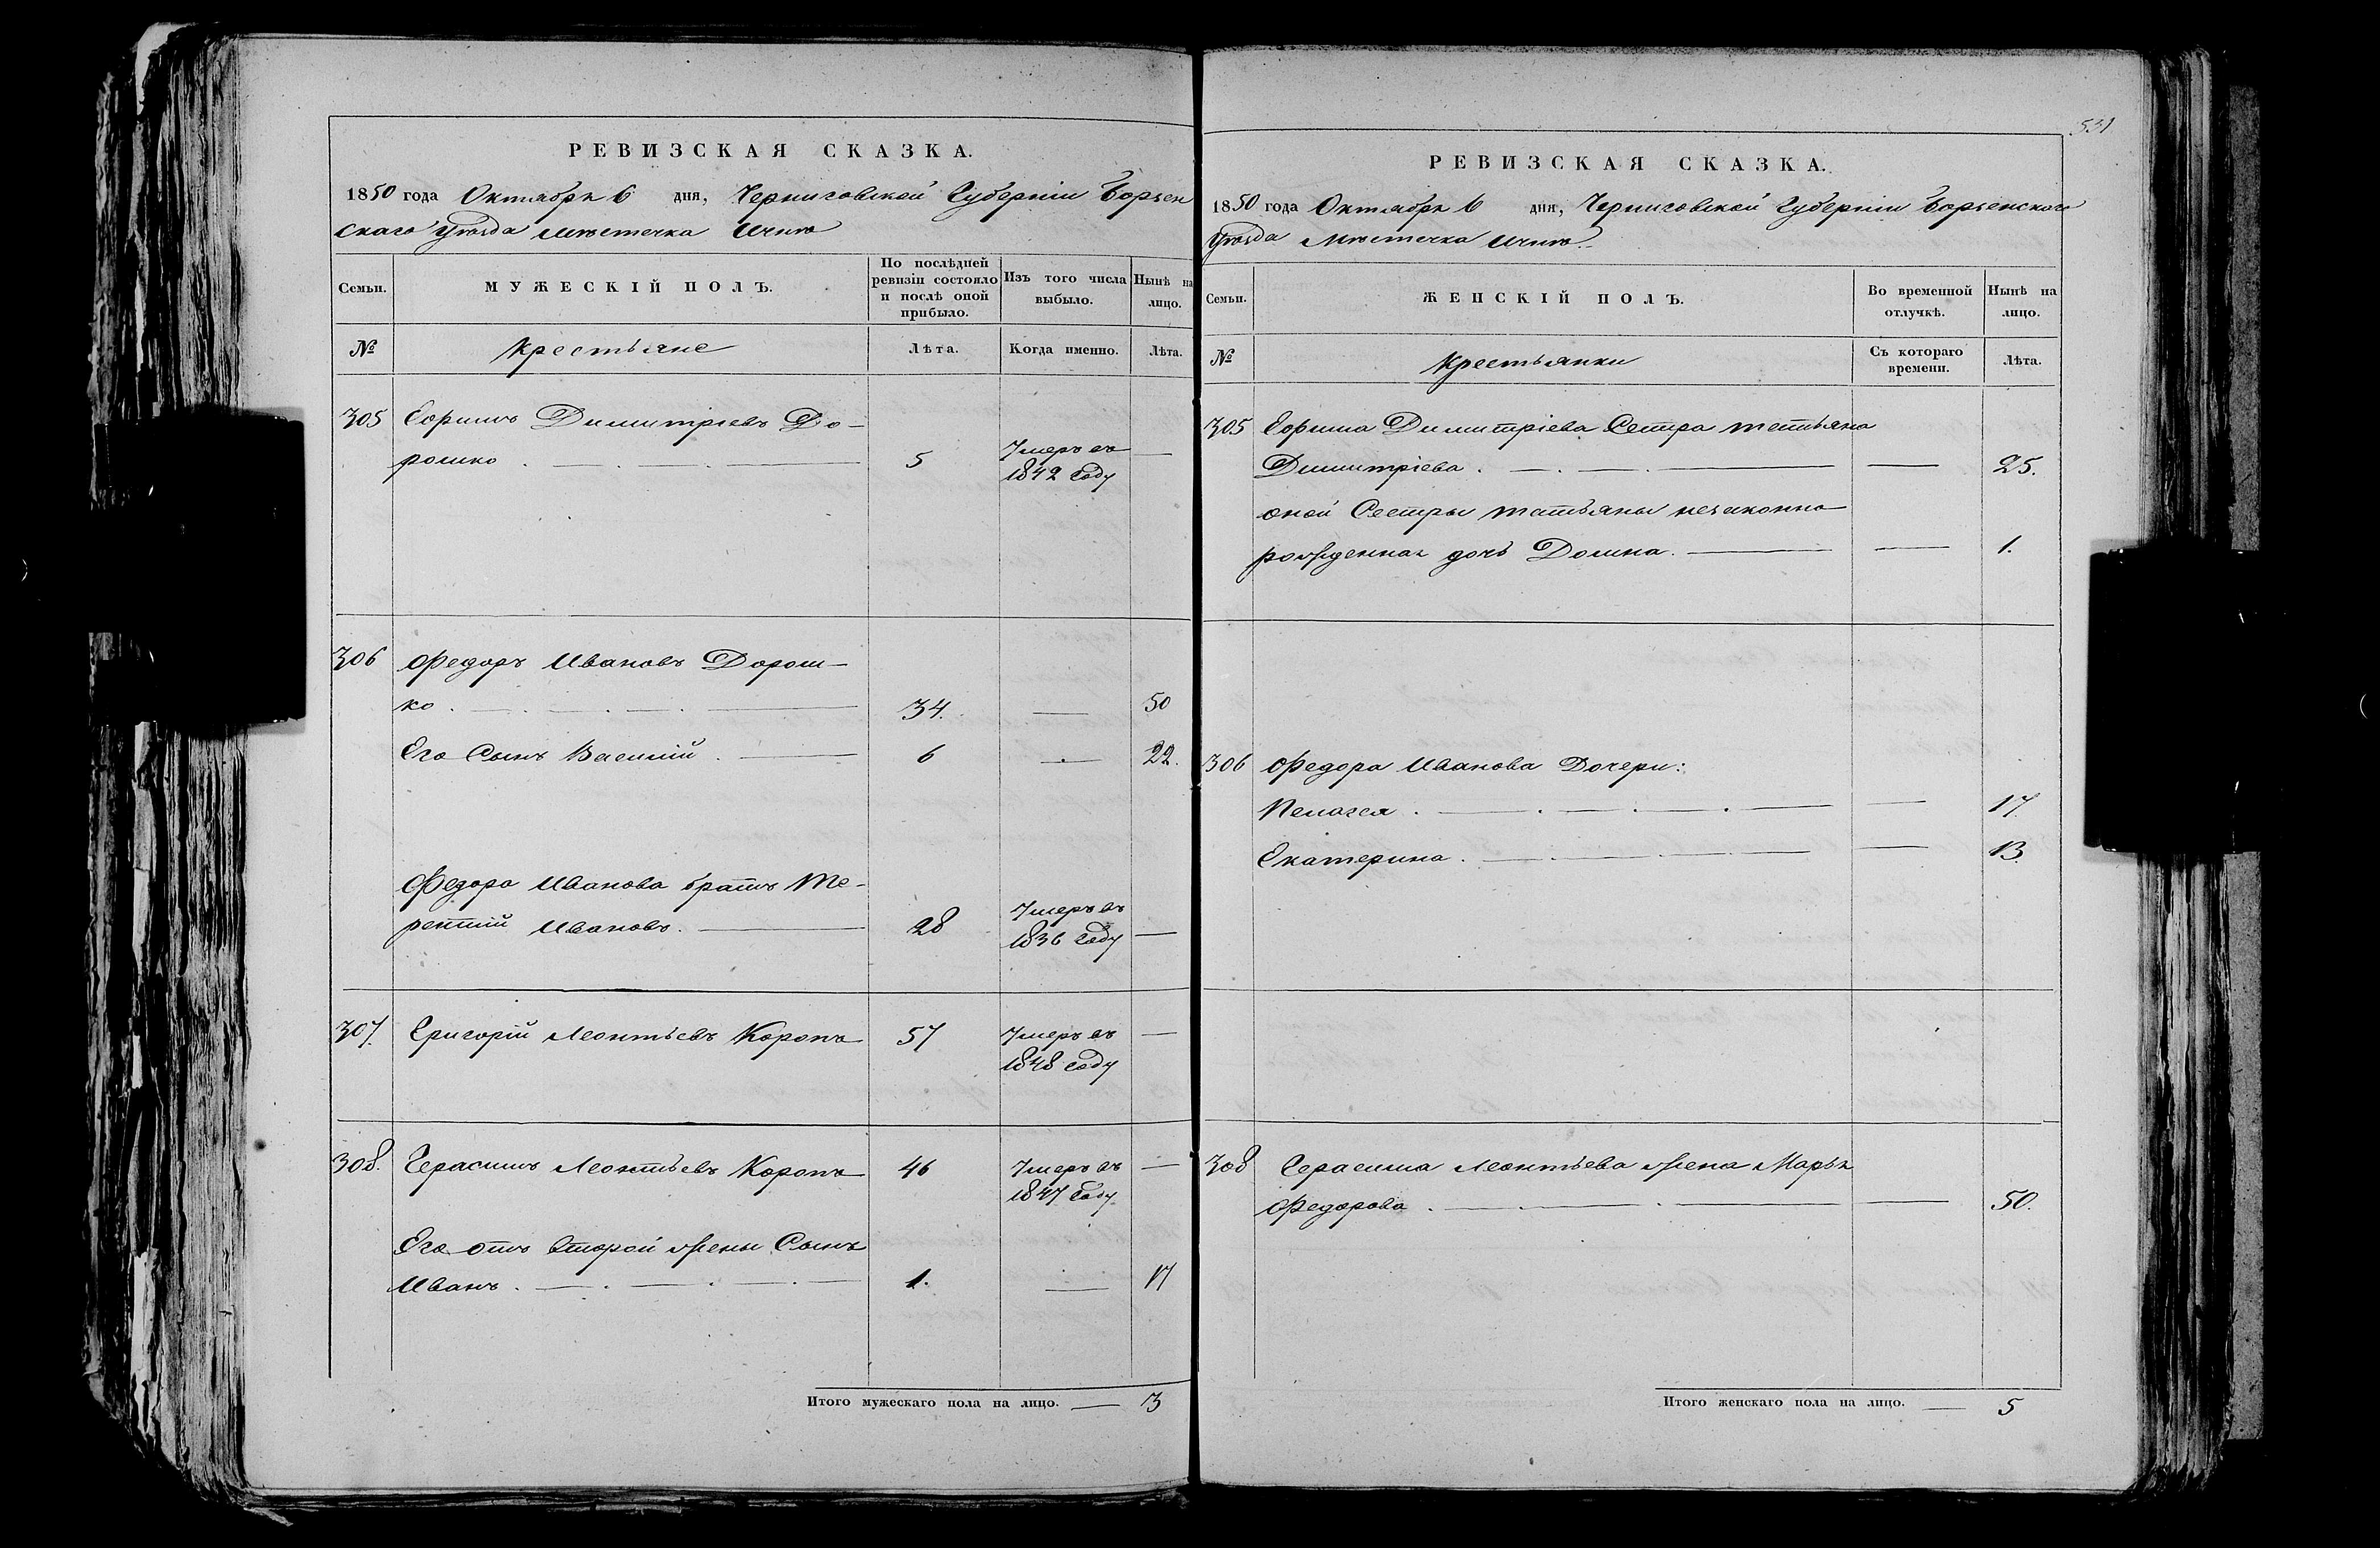 РЕВИЗСКАЯ СКАЗКА.
1850 года Октября 6 дня, Черниговской Губерніи Борзен
скаго уѣзда мѣстечка Ични
Семьи. МУЖЕСКІЙ ПОЛЪ. По послѣдней ревизіи состояло и послѣ оной прибыло. Изъ того числа выбыло. Нынѣ на лицо.
№ Крестьяне Лѣта. Когда именно. Лѣта.
305 Ефимъ Димитріевъ До-
рошко 5 Умеръ въ 1842 году —
306 Федоръ Ивановъ Дорош-
ко 34. — 50
Его Сынъ Василій 6 — 22.
Федора Иванова братъ Те-
рентій Ивановъ 28 Умеръ въ 1836 году —
307. Григорій Леонтьевъ Коропъ 57 Умеръ въ 1848 году —
308. Герасимъ Леонтьевъ Коропъ 46 Умеръ въ 1847 году —
Его отъ второй жены Сынъ
Иванъ 1. — 17
Итого мужескаго пола на лицо. — 3
531
РЕВИЗСКАЯ СКАЗКА.
1850 года Октября 6 дня, Черниговской Губерніи Борзенскаго
уѣзда Мѣстечка Ични
Семьи. ЖЕНСКІЙ ПОЛЪ. Во временной отлучкѣ. Нынѣ на лицо.
№ Крестьянки Съ котораго времени. Лѣта.
305 Ефима Димитріева Сестра татьяна
Димитріева — 25.
оной Сестры татьяны незаконно
рожденная дочь Домна — 1.
306 Федора Иванова Дочери:
Пелагея — 17
Екатерина — 13.
308 Герасима Леонтьева жена Марья
Федорова — 50.
Итого женскаго пола на лицо. — 5